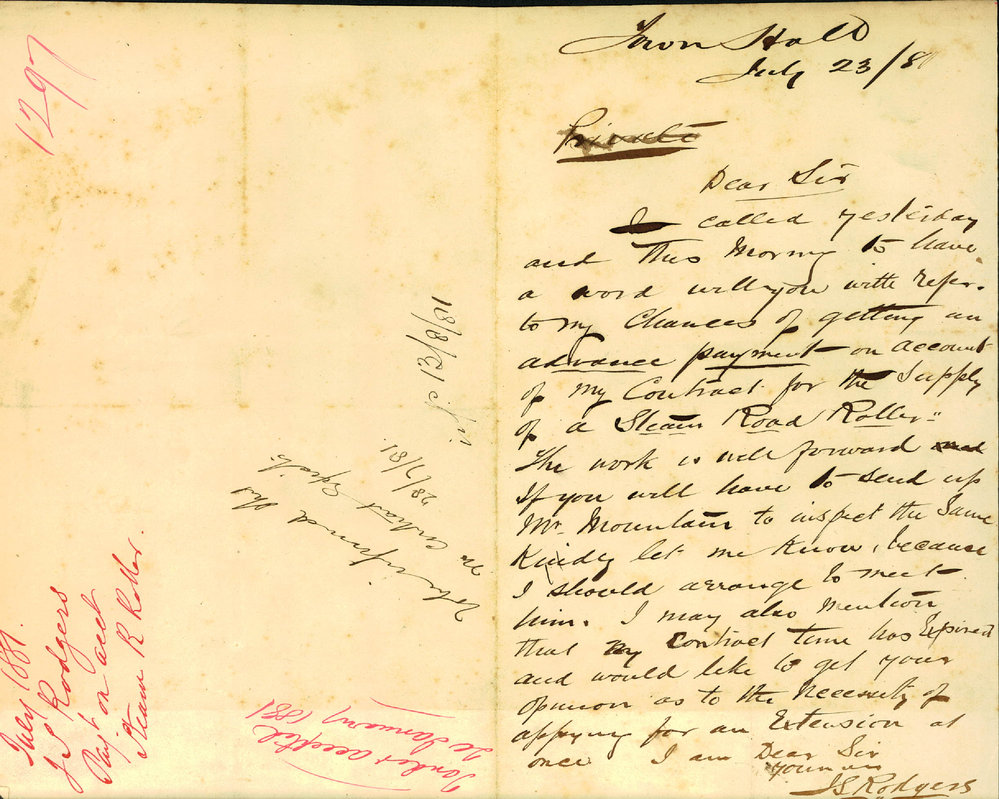 Town Hall
July 23/81
Private
Dear Sir
I called yesterday
and this Morning to have
a word with you with refer.
to my Chances of getting an
advance payment on account
of my Contract for the Supply
of a Steam Road Roller"
The work is well forward and
If you will have to send up
Mr. Mountain to inspect the Same
Kindly let me know, because
I should arrange to meet
him. I may also mention
that my contract time has Expired
and would like to get your
opinion as to the necessity of
applying for an Extension at
once I am Dear Sir
yours
JS Rodgers
1297
July 1881.
J S Rodgers
Pay't on acct
Steam R Roller.
Tender accepted
20 January 1881
informed this
28/7/81.
13/8/81